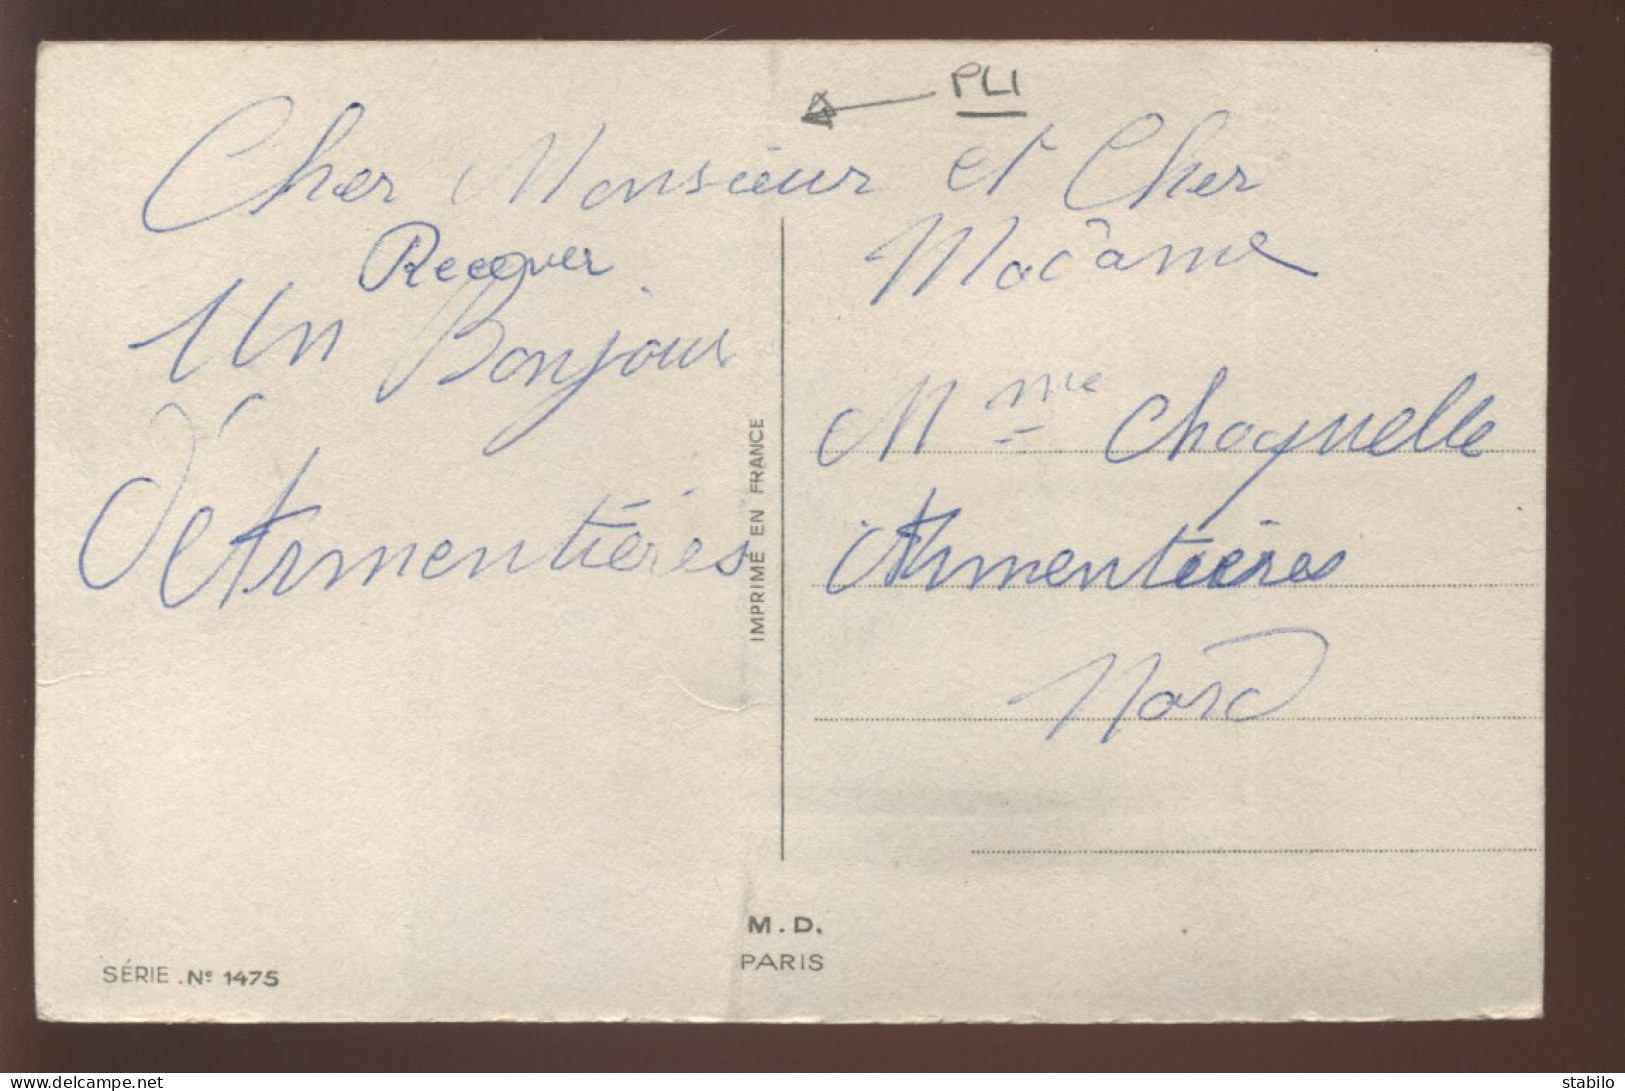 PLI
Cher Monsieur et Cher
Madame
Recever
Un Bonjour
d'Armentières
Mme Choquelle
Armentières
Nord
IMPRIMÉ EN FRANCE
M.D.
PARIS
SÉRIE .Nº 1475
stabilo